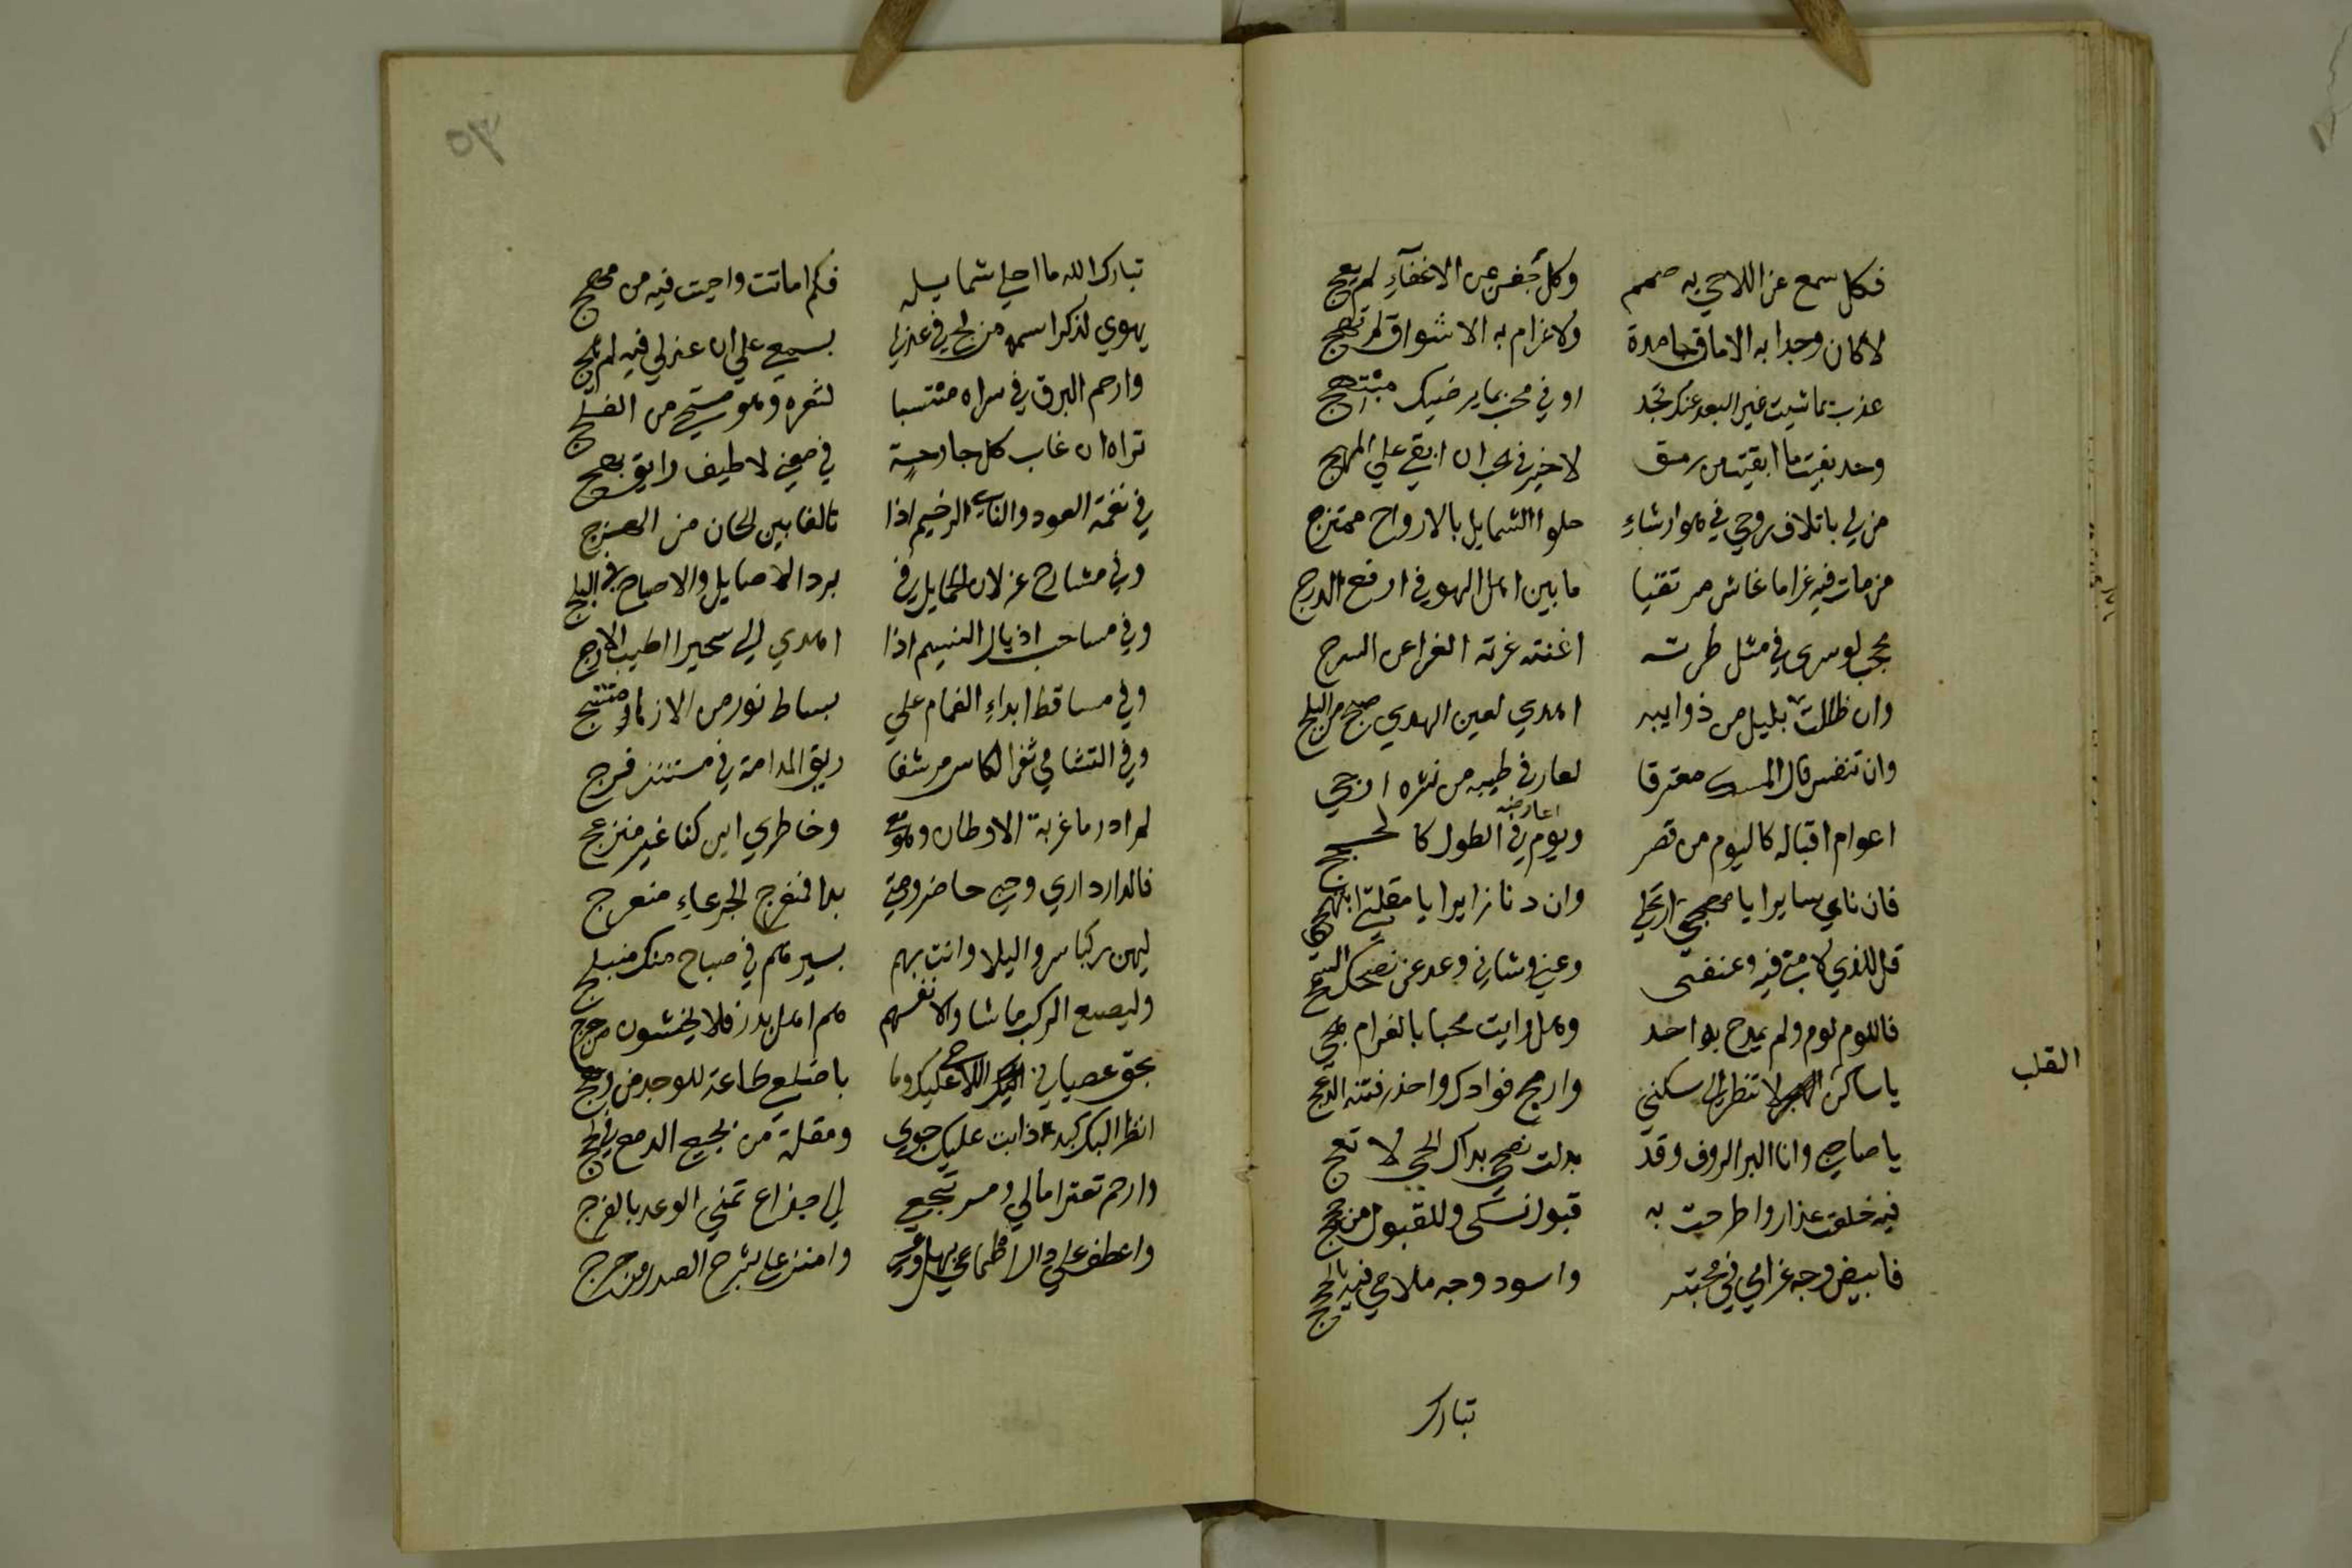 فكل سمع عن اللاحي به صمم وكل جفن عن الاغفآءِ لم يعج
لا كان وجدا به الاماق جامدة ولا غرام به الاشواق لم تهج
عذب بما شيت غير البعد عنك تجد اوفي محب بما يرضيك مبتهج
وخذ بقيت ما ابقيت من رمق لا خير في الحب ان ابقي علي المهج
من لي باتلاف روحي في هوا رشاءِ حلوا الشمايل بالارواح ممتزج
من مات فيه غراما عاش مرتقيا ما بين اهل الهوي في ارفع الدرج
محجب لو سري في مثل طرته اغنته غرته الغرا عن السرج
وان ظللت بليل من ذوايبه اهدي لعين الهدي صبح من البلج
وان تنفس قال المسك معترفا لعارفي طيبه من نشره ارجي
اعوام اقباله كاليوم من قصر ويوم اعراضه في الطول كالحجج
فان ناي سايرا يا مهجتي ارتحلي وان دنا زايرا يا مقلتي ابتهجي
قل للذي لامني فيه وعنفني دعني وشاني وعد عن نصحك السمج
فاللوم لوم ولم يمدح به احد وهل رايت محبا بالغرام هجي
القلب
يا ساكن لا تنظر الي سكني واربح فوادك واحذر فتنه الدعج
يا صاحبي وانا البر الروف وقد بدلت نصحي بداك الحي لا تعج
فيه خلعت عذار واطرحت به قبول نسكي وللقبول من حجج
فابيض وجه غرامي في محبته واسود وجه ملامي فيه بالحجج
تبارك
٥٣
تبارك الله ما احلي شمايله فكم اماتت واحيت فيه من مهج
يهوي لذكر اسمه من لج في عذلي بسمعي علي ان عذلي فيه لم يلج
وارحم البرق في سراه منتسبا لثغره وهو مستحي من الفلج
تراه ان غاب كل جارحة في معني لا طيف رايق بهج
في نغمة العود والناي الرخيم اذا تالفا بين الحان من الهزج
وفي مسارح غزلان الخمايل في برد الاصايل والاصباح في البلج
وفي مساحب اذيال النسيم اذا اهدي الي سحيرا اطيب الارج
وفي مساقط ابداءِ الغمام علي بساط نور من الازهار منتسج
وفي التشامي ثغر الكاس مرشفا ريق المدامة في مستنزه فرج
لم ادر ما غربة الاوطان وهو معي وخاطري اين كنا غير منزعج
فالدار داري وحبي حاضر ومتي بدا فمنفرج الجرعاءِ منعرج
ليهن ركبا سروا ليلا وانت بهم بسيرهم في صباح منك منبلج
وليصنع الركب ما شاوا لانفسهم هم اهل بدر فلا يخشون من حرج
بحق عصياني اللاحي عليك وما باضلعي طاعة للوجد من وهج
انظر الي كبد ذابت عليك جوي ومقلة من نجيع الدمع في لجج
وارحم تعثر امالي ومرتجعي الي خداع تمني الوعد بالفرج
واعطف علي ذل اطماعي بهل وعسي وامنن علي بشرح الصدر من حرج